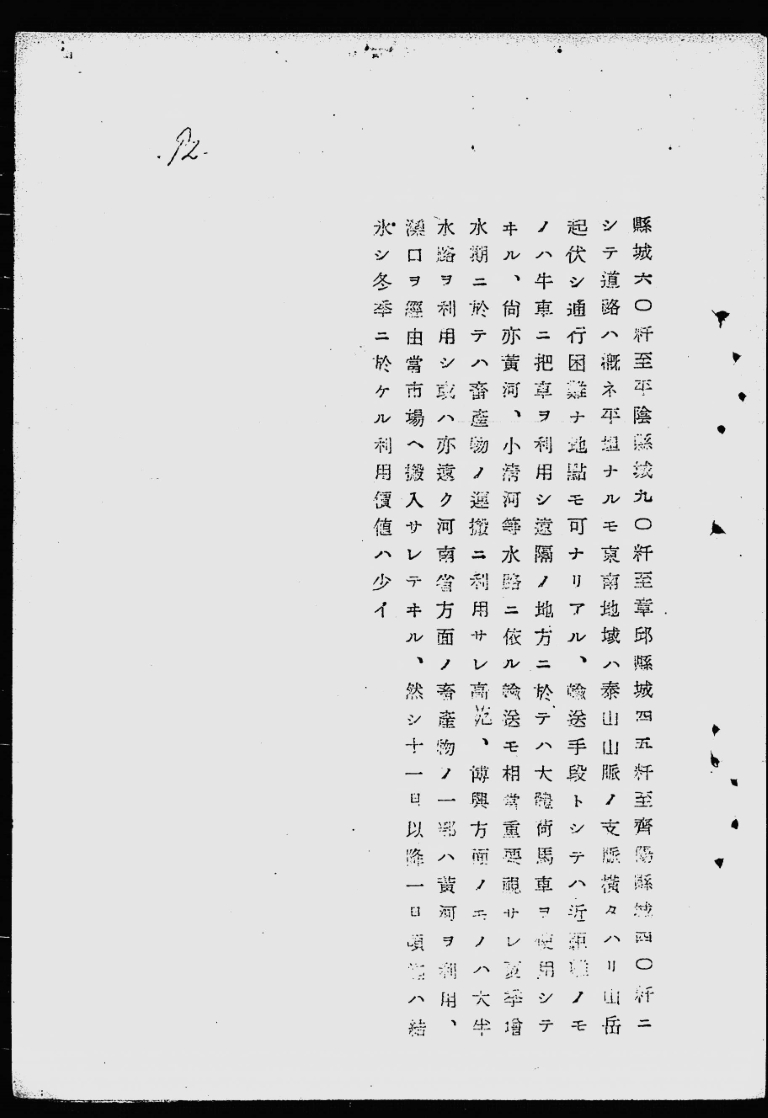 92.
縣城六〇粁至平陰縣城九〇粁至章邱縣城四五粁至齊陽縣城四〇粁ニ
シテ道路ハ概ネ平坦ナルモ東南地域ハ泰山山脈ノ支脈横タハリ山岳
起伏シ通行困難ナ地點モ可ナリアル、輸送手段トシテハ近距離ノモ
ノハ牛車ニ把車ヲ利用シ遠隔ノ地方ニ於テハ大體荷馬車ヲ使用シテ
ヰル、尚亦黃河、小清河等水路ニ依ル輸送モ相當重要視サレ夏季增
水期ニ於テハ畜產物ノ運搬ニ利用サレ高苑、博興方面ノモノハ大半
水路ヲ利用シ或ハ亦遠ク河南省方面ノ畜產物ノ一部ハ黃河ヲ利用、
濼口ヲ經由當市場ヘ搬入サレテヰル、然シ十一日以降一日頃迄ハ結
氷シ冬季ニ於ケル利用價値ハ少イ